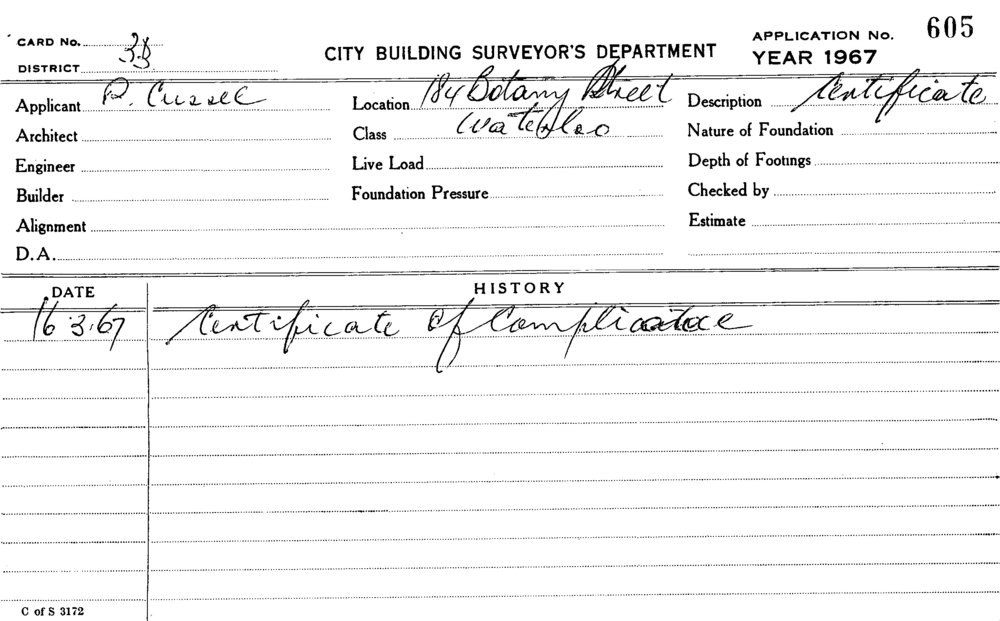 CARD No. 3B
DISTRICT
CITY BUILDING SURVEYOR'S DEPARTMENT
APPLICATION No. 605
YEAR 1967
Applicant P. Cussel Location 184 Botany Street Description Certificate
Architect Class Waterloo Nature of Foundation
Engineer Live Load Depth of Footings
Builder Foundation Pressure Checked by
Alignment Estimate
D.A.
DATE HISTORY
16 3.67 Certificate Of
C of S 3172